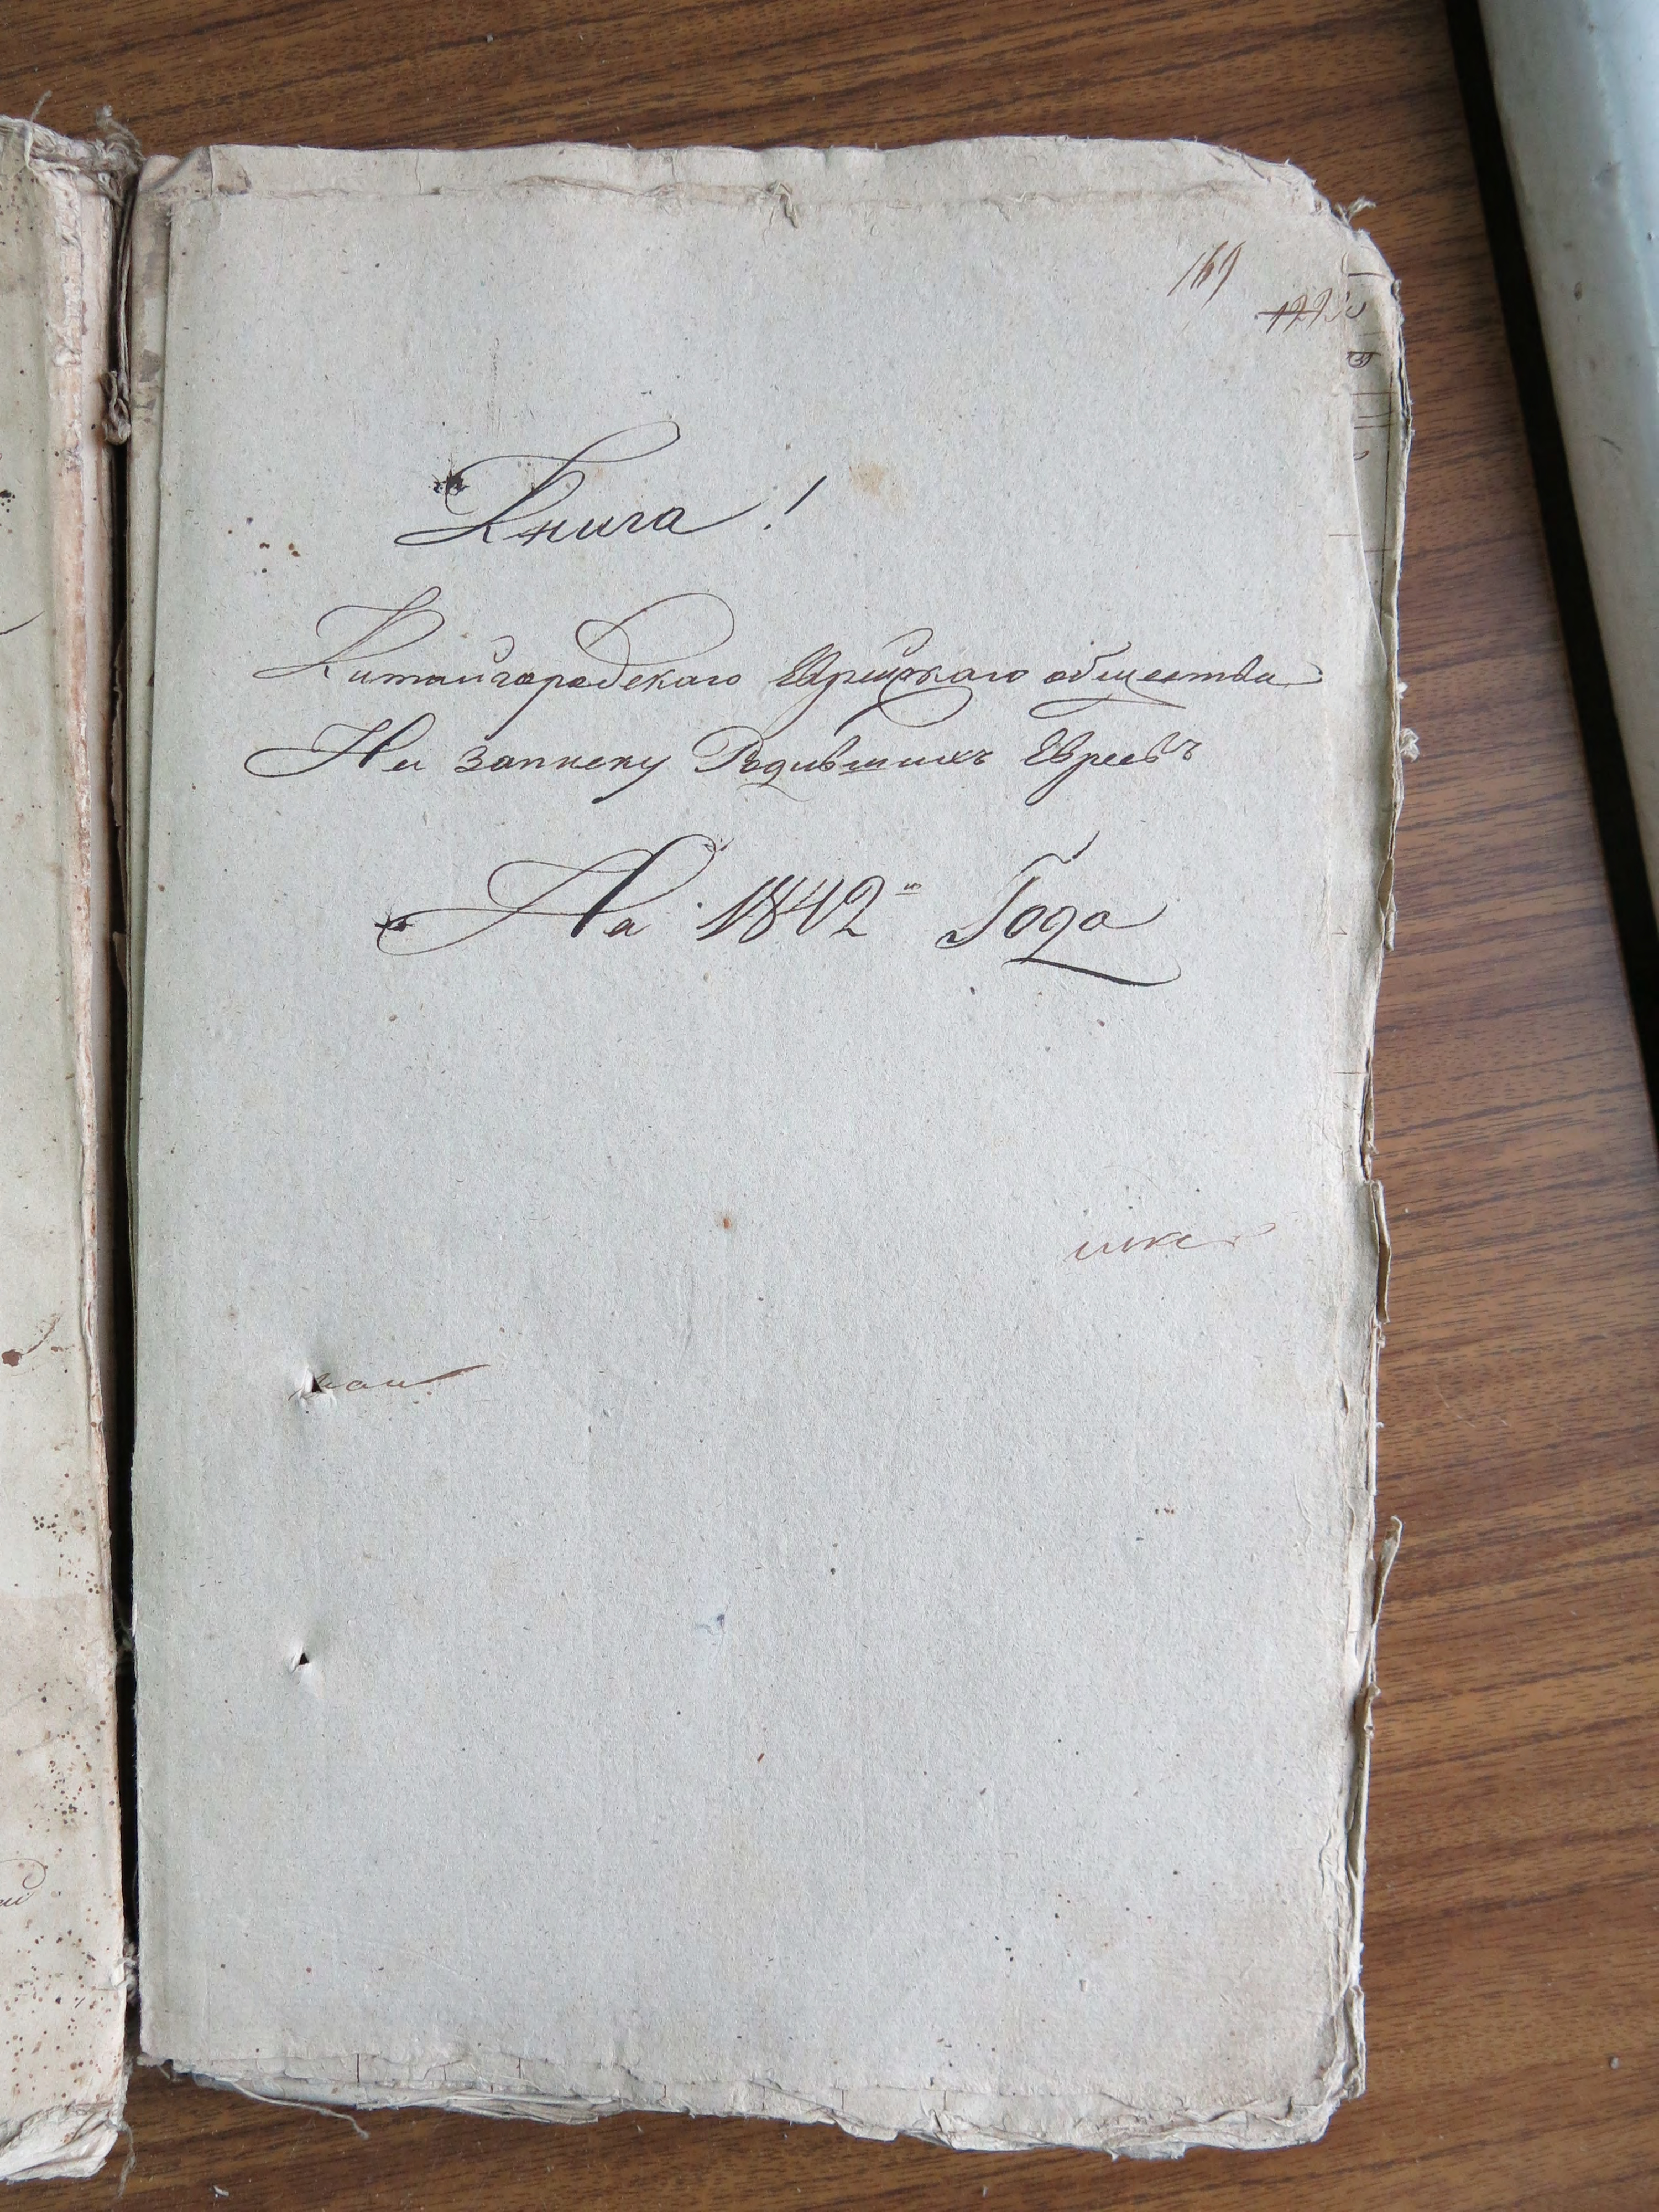 169
Книга!
Китайгородскаго Еврейскаго общества
На записку Родившихъ Евреевъ
На 1842й Года